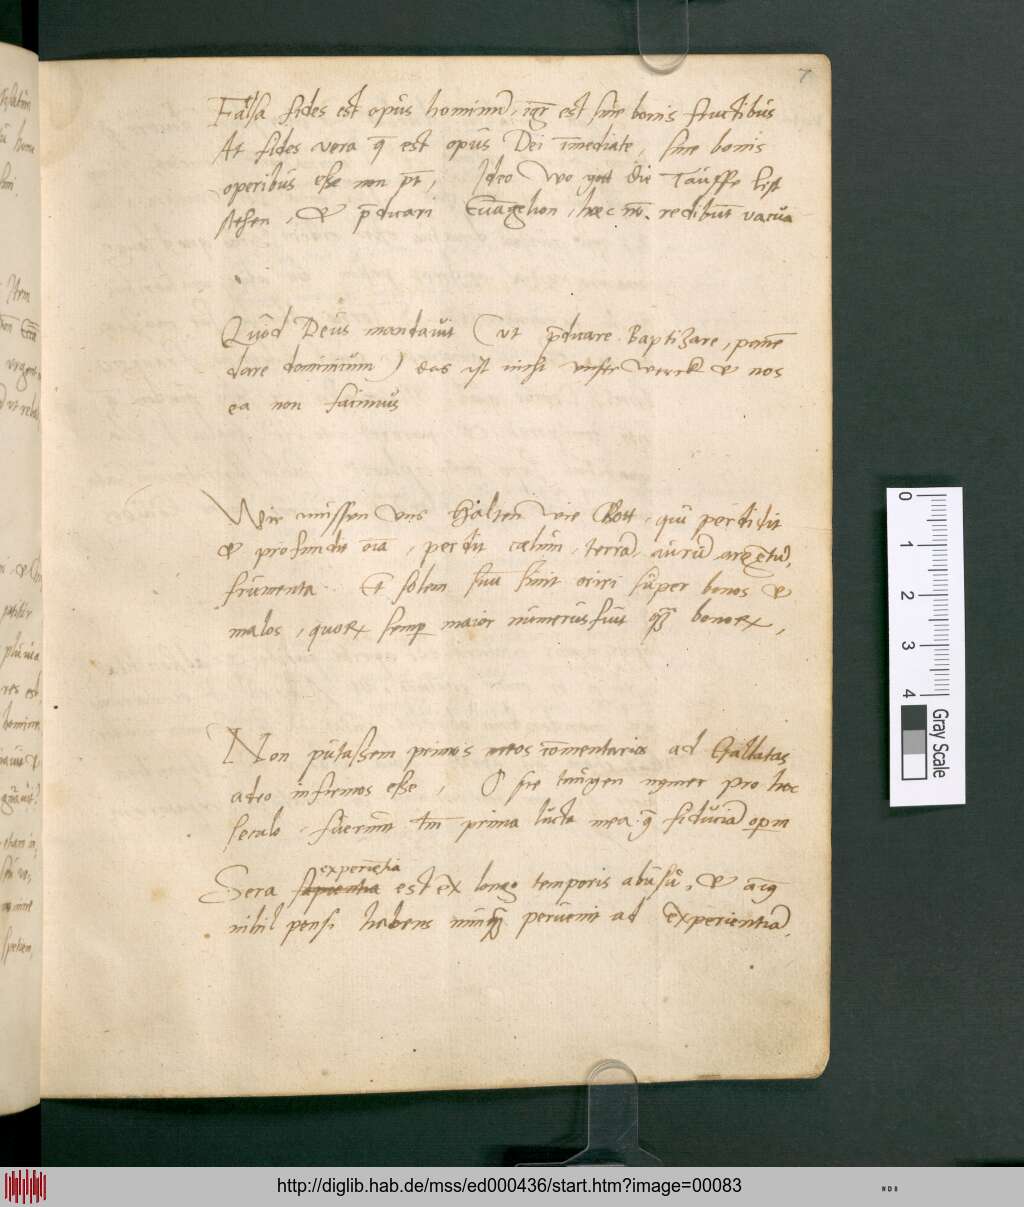 7
Falsa fides est opus hominum, igr est sine bonis fructibus
At fides vera q̃ est opus Dei imediate, sine bonis
operibus esse non pt, Ideo wo gott die Tauffe lest
stehen, & p̃dicari Euãgelion, haec nõ redibũt vacua
Quod Deus mandauit (ut p̃dicare Baptizare, panem
dare dominicum) das ist nicht vnser werck & nos
ea non facimus
Wir mussen vns halten wie Gott, qui perdidit
& profundit oĩa, perdit caelum, terrã, aurũ argẽtũ,
frumenta. Et solem suũ sinit oriri super bonos &
malos, quorum semp maior numerus fuit quã bonorum,
Non putassem primos meos comentarios ad Gallatas
adeo infirmos esse, O sie tugen nymer pro hoc
seculo. fuerunt tm̃ prima lucta mea 9 fiduciã operum
experiẽtia
Sera sapientia est ex longo temporis abusu, &
nihil pensi habens nunq̃ peruenit ad experientiã.
0
1
2
3
4
Gray Scale
http://diglib.hab.de/mss/ed000436/start.htm?image=00083